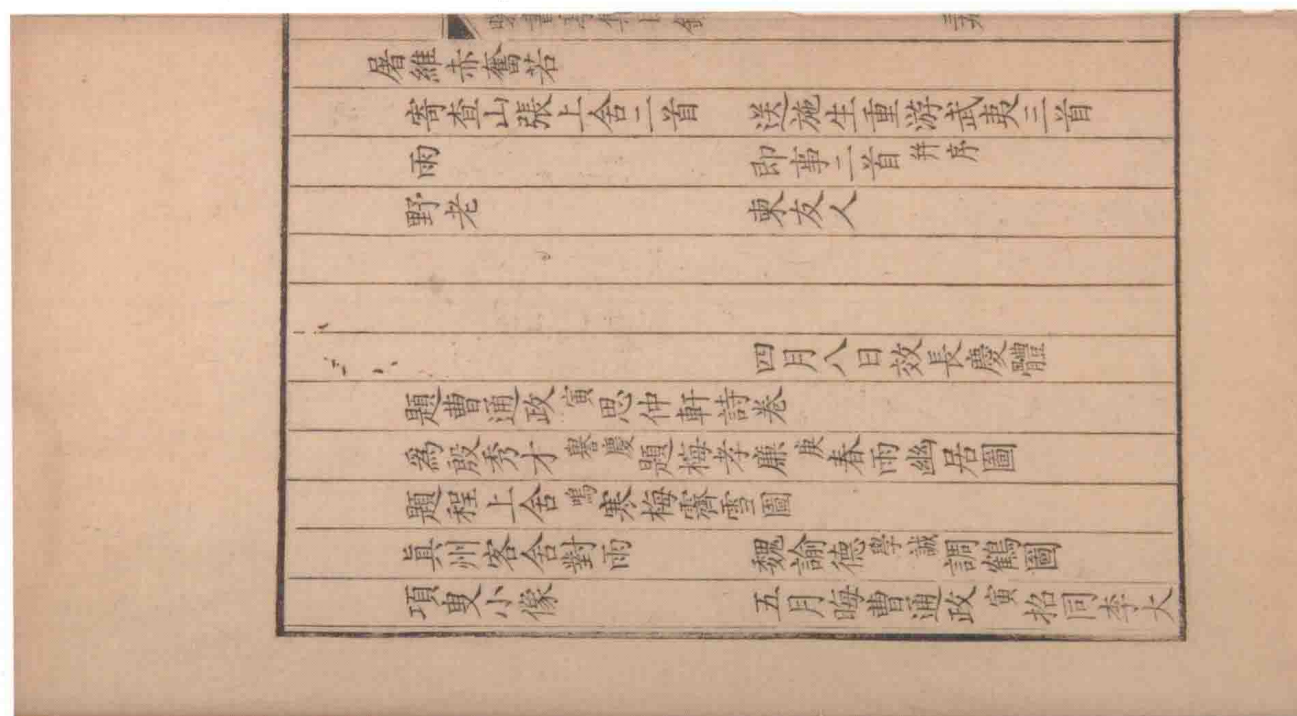 曝書亭集目錄
屠維赤奮若
寄查山張上舍二首　送施生重游武夷三首
雨　即事二首幷序
野老　柬友人
四月八日效長慶體
題曹通政寅思仲軒詩卷
爲殷秀才譽慶題梅孝廉庚春雨幽居圖
題程上舍鳴寒梅霽雪圖
眞州客舍對雨　魏諭德學誠調鶴圖
項叟小像　五月晦曹通政寅招同李大